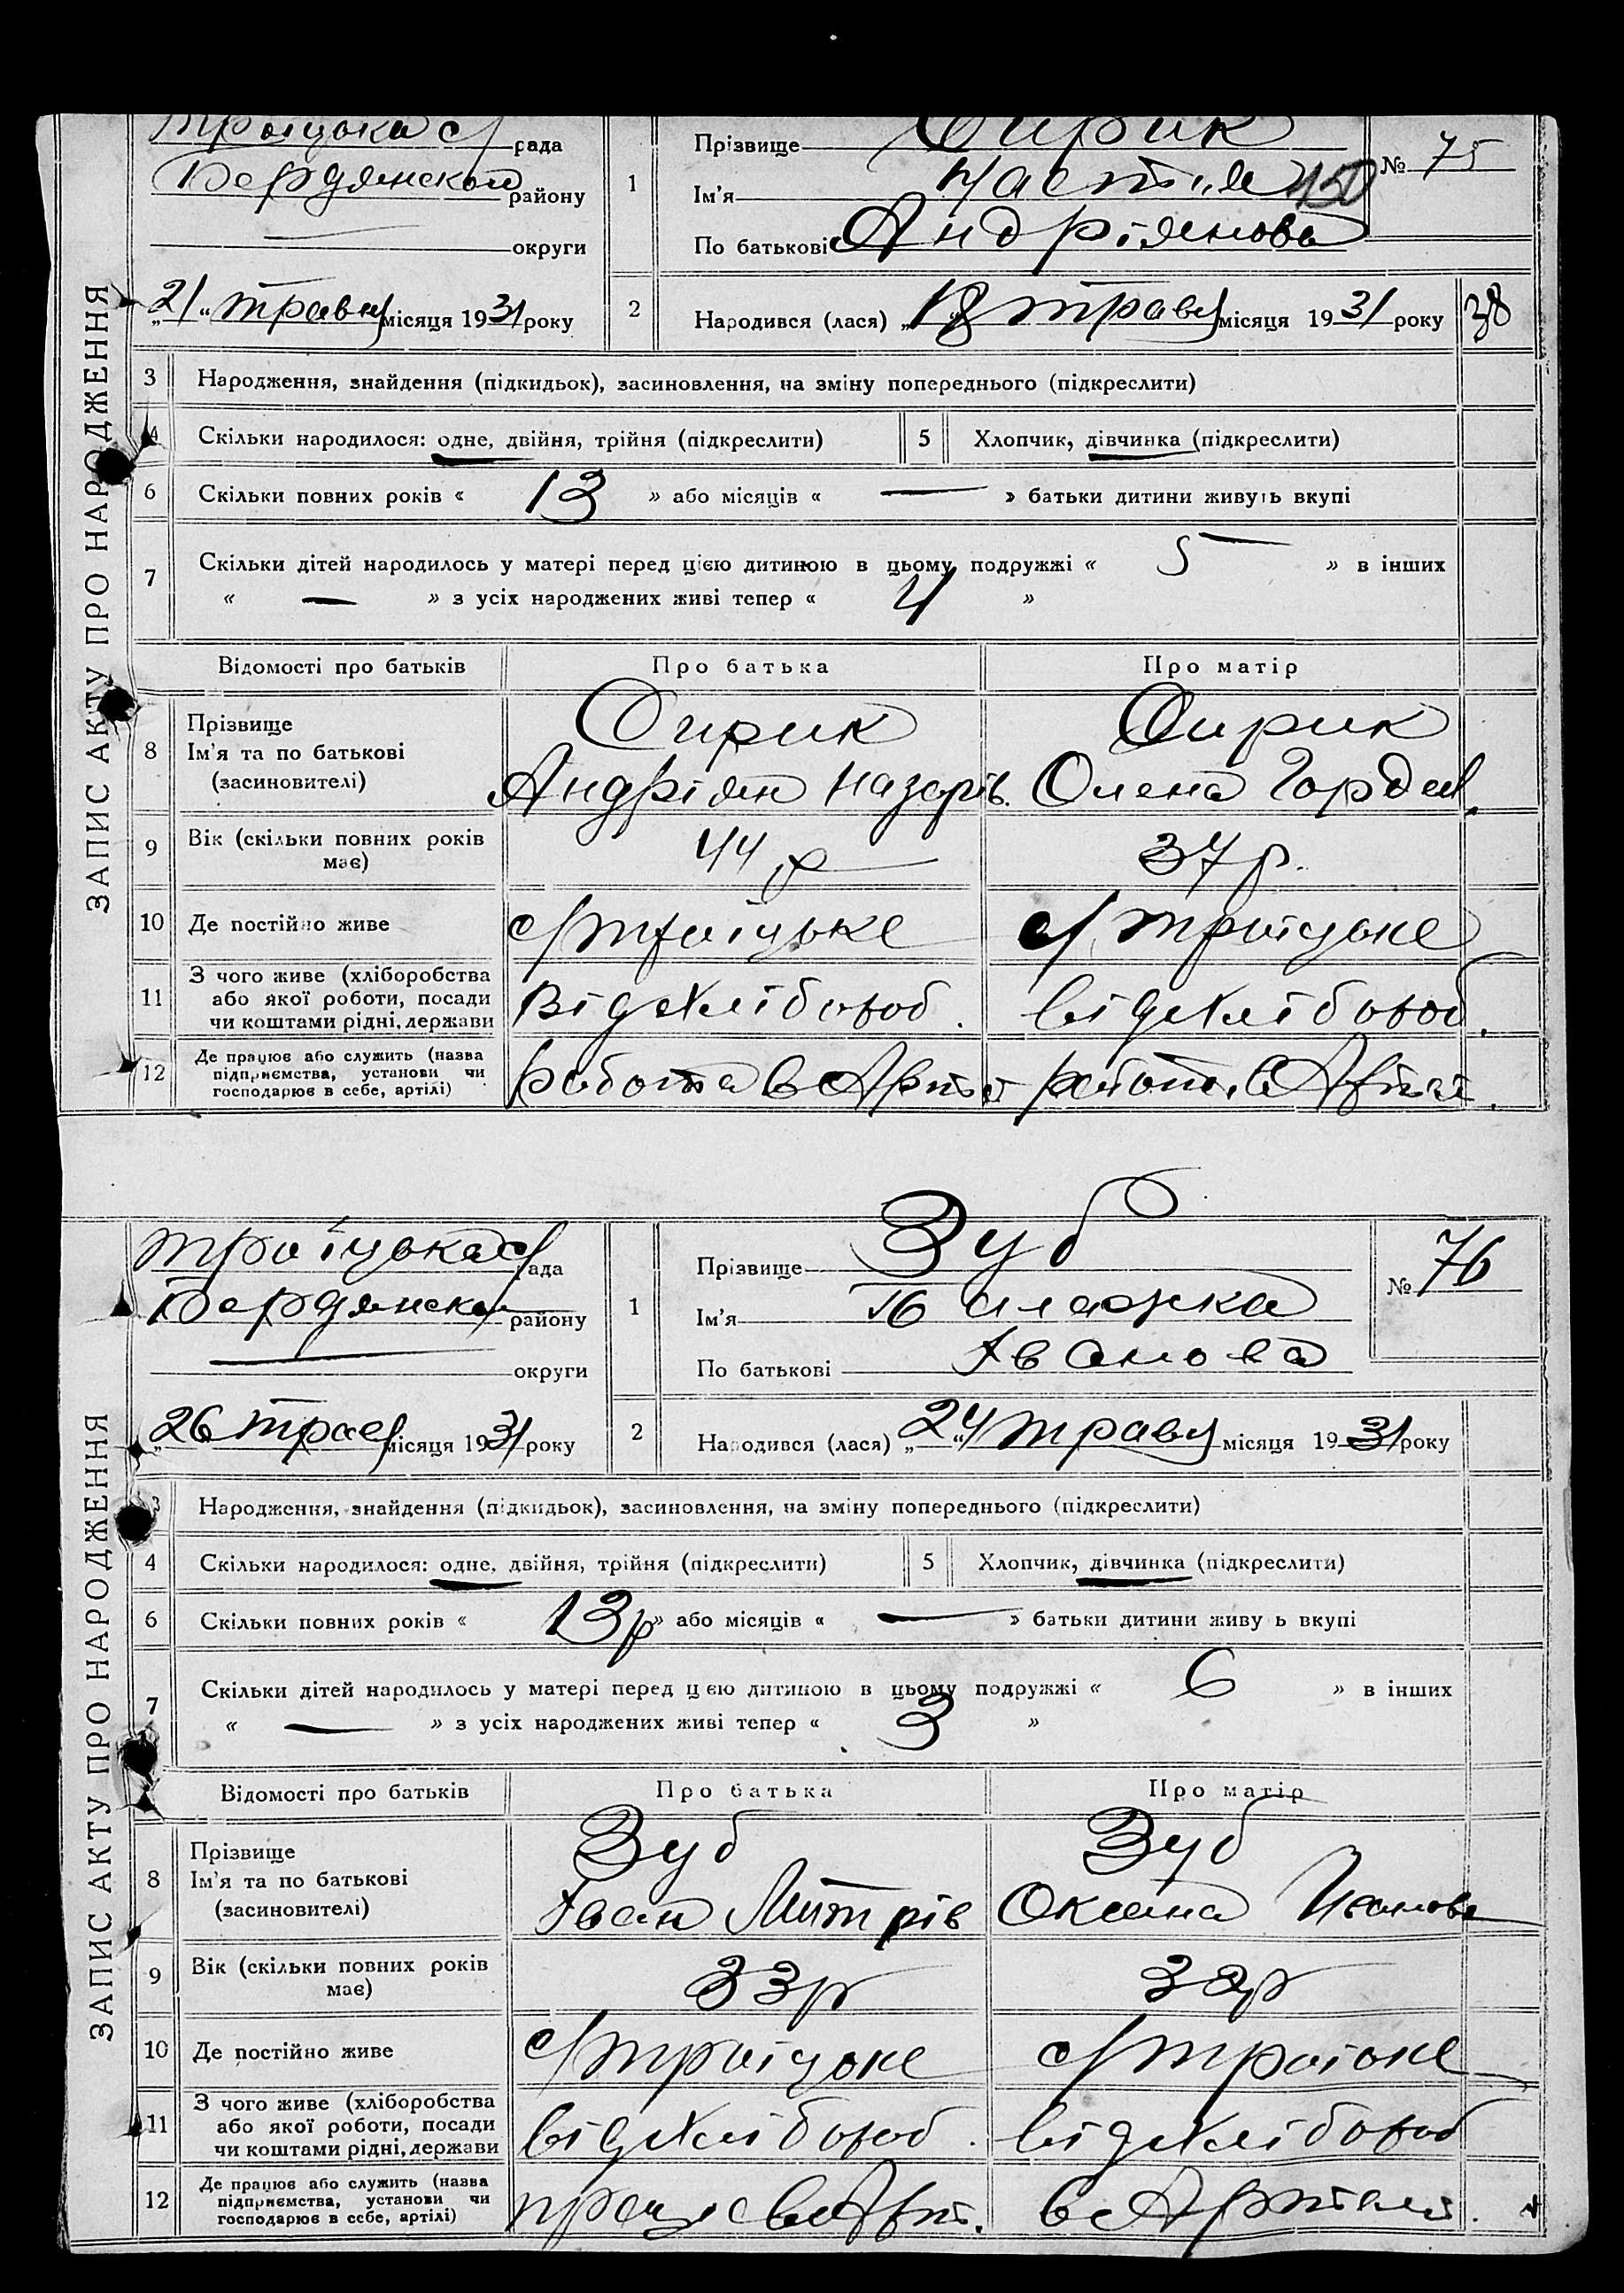 ЗАПИС АКТУ ПРО НАРОДЖЕННЯ
Троіцька с/ рада
Бердянской району
округи
„21“ травня місяця 1931 року
1
Прізвище Сирик
Ім'я Настия
По батькові Андріянова
№ 75
150
2
Народився (лася) „18“ травя місяця 1931 року
38
3 Народження, знайдення (підкидьок), засиновлення, на зміну попереднього (підкреслити)
4 Скільки народилося: одне, двійня, трійня (підкреслити) 5 Хлопчик, дівчинка (підкреслити)
6 Скільки повних років « 13 » або місяців « — » батьки дитини живуть вкупі
7 Скільки дітей народилось у матері перед цією дитиною в цьому подружжі « 5 » в інших
« — » з усіх народжених живі тепер « 4 »
Відомості про батьків Про батька Про матір
8 Прізвище Ім'я та по батькові (засиновителі)
Сирик Сирик
Андріян Назарів. Олена Гордеев.
9 Вік (скільки повних років має) 44 р 37 р.
10 Де постійно живе с/ троіцьке с/ троіцьке
11 З чого живе (хліборобства або якої роботи, посади чи коштами рідні, держави
від хлібороб. від хлібороб.
12 Де працює або служить (назва підприємства, установи чи господарює в себе, артілі)
робота в Артілі работ. в Артілі.
ЗАПИС АКТУ ПРО НАРОДЖЕННЯ
троіцька с/ рада
Бердянской району
округи
„26 трав місяця 1931 року
1
Прізвище Зуб
Ім'я Палажка
По батькові Іванова
№ 76
2
Народився (лася) „24“ травя місяця 1931 року
3 Народження, знайдення (підкидьок), засиновлення, на зміну попереднього (підкреслити)
4 Скільки народилося: одне, двійня, трійня (підкреслити) 5 Хлопчик, дівчинка (підкреслити)
6 Скільки повних років « 13 р » або місяців « — » батьки дитини живу ь вкупі
7 Скільки дітей народилось у матері перед цією дитиною в цьому подружжі « 6 » в інших
« — » з усіх народжених живі тепер « 3 »
Відомості про батьків Про батька Про матір
8 Прізвище Ім'я та по батькові (засиновителі)
Зуб Зуб
Іван Митрів Оксана Иванова
9 Вік (скільки повних років має) 33 р
10 Де постійно живе с/ троіцоке с/ троіоке
11 З чого живе (хліборобства або якої роботи, посади чи коштами рідні, держави
від хлібороб. від хлібороб
12 Де працює або служить (назва підприємства, установи чи господарює в себе, артілі)
працює в Арт. в Артілі.